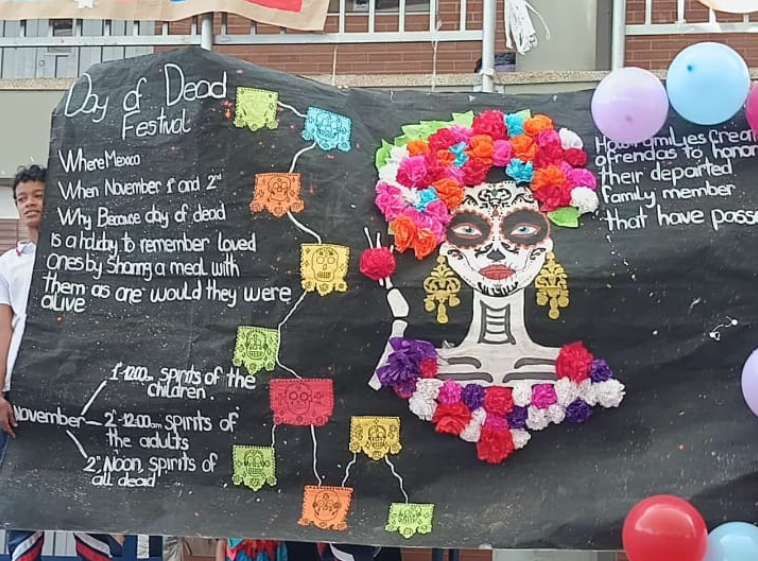 Day of Dead
Festival
Where Mexico
When November 1st and 2nd
Why Because day of dead
is a holiday to remember loved
ones by sharing a meal with
them as one would they were
alive
November
1st 12:00am spirits of the
children
2nd 12:00am spirits of
the adults
2nd Noon, spirits of
all dead
How families creat
ofrendas to honor
their departed
family member
that have passe